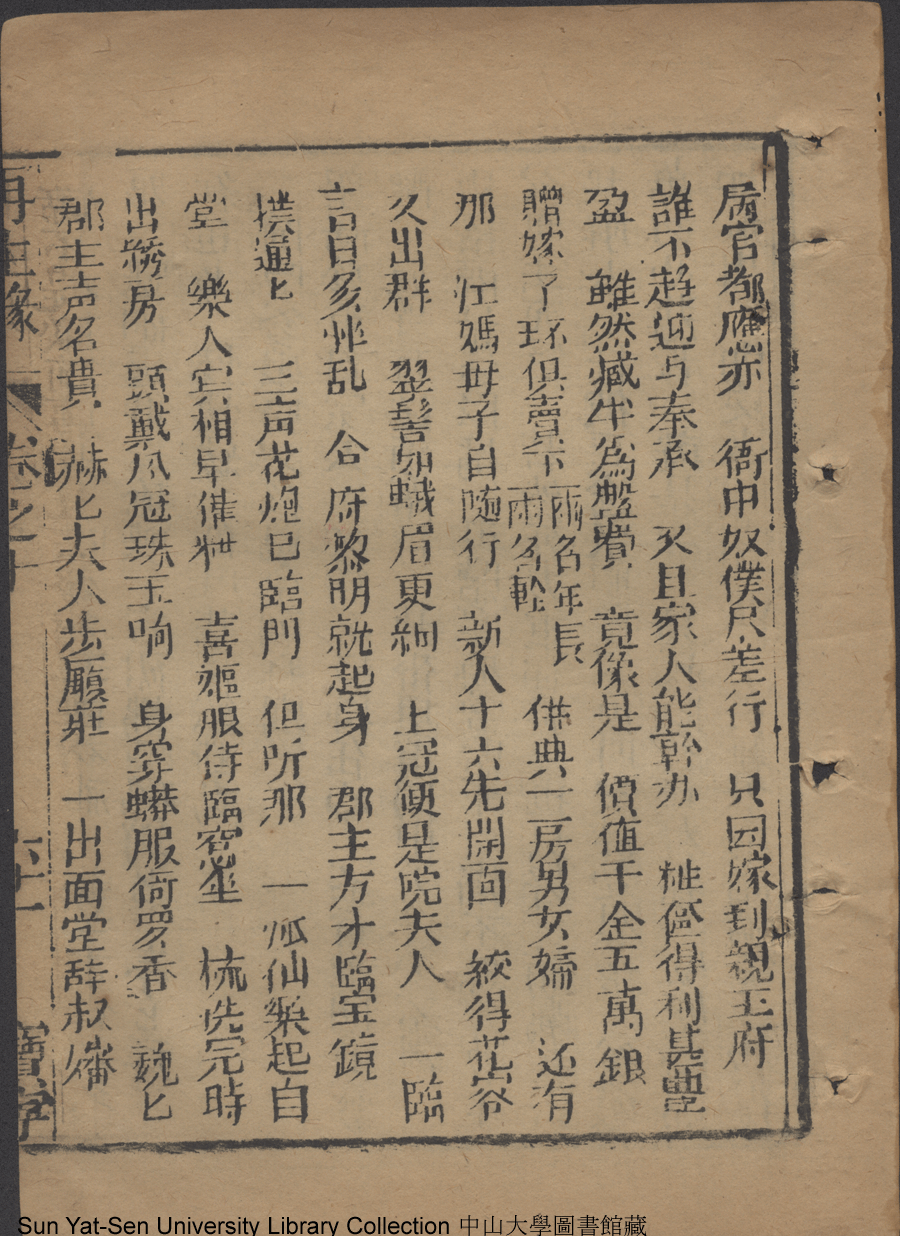 属官都應亦　衙中奴僕尽差行　只因嫁到親王府
誰不趋迎与奉承　又且家人能幹办　粧奩得利甚豊
盈　虽然藏半為盤費　竟像是　價值千金五萬銀
贈嫁了环俱賣下　兩名年長兩名輕　供典一房男女婦　还有
那　江媽母子自随行　新人十六先開面　絞得花容
又出群　翠髻如蛾眉更细　上冠便是院夫人　一臨
吉日多忙乱　合府黎明就起身　郡主方才臨宝鏡
撲通匕　三声花炮已臨門　但听那　一派仙樂起自
堂　樂人宾相早催粧　喜嫗服侍臨窓坐　梳洗完時
出綉房　頭戴凤冠珠玉响　身穿蟒服倚罗香　巍匕
郡主声名貴　赫匕夫人步履莊　一出面堂辞叔嬸
再生缘　卷之十　六十一　寶寧
Sun Yat-Sen University Library Collection 中山大學圖書館藏